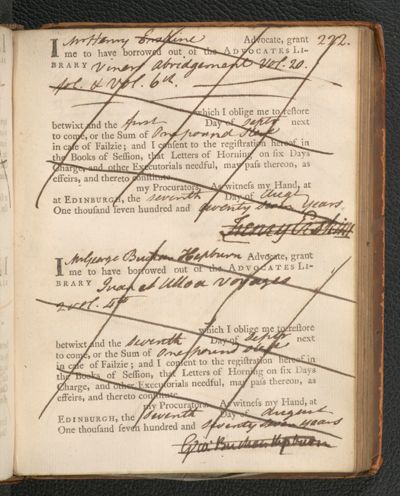 222.
I Mr Henry Erskine Advocate, grant
me to have borrowed out of the ADVOCATES LI-
BRARY Viners Abridgement Vol. 20.
fol. & Vol. 6th.
which I oblige me to reſtore
betwixt and the first Day of Septr next
to come, or the Sum of One pound Sterl
in caſe of Failzie; and I conſent to the regiſtration hereof in
the Books of Seſſion, that Letters of Horning on ſix Days
Charge, and other Executorials needful, may paſs thereon, as
effeirs, and thereto conſtitute
my Procurators. As witneſs my Hand, at
at EDINBURGH, the seventh Day of Augt
One thouſand ſeven hundred and seventy seven years.
Henry Erskine
I Mr George Buchan Hepburn Advocate, grant
me to have borrowed out of the ADVOCATES LI-
BRARY Juan et Ulloa Voyages
2 vol. 4to
which I oblige me to reſtore
betwixt and the seventh Day of Septr next
to come, or the Sum of One pound Sterl
in caſe of Failzie; and I conſent to the regiſtration hereof in
the Books of Seſſion, that Letters of Horning on ſix Days
Charge, and other Executorials needful, may paſs thereon, as
effeirs, and thereto conſtitute
my Procurators. As witneſs my Hand, at
EDINBURGH, the seventh Day of August
One thouſand ſeven hundred and seventy seven years
Geo: Buchan Hepburn